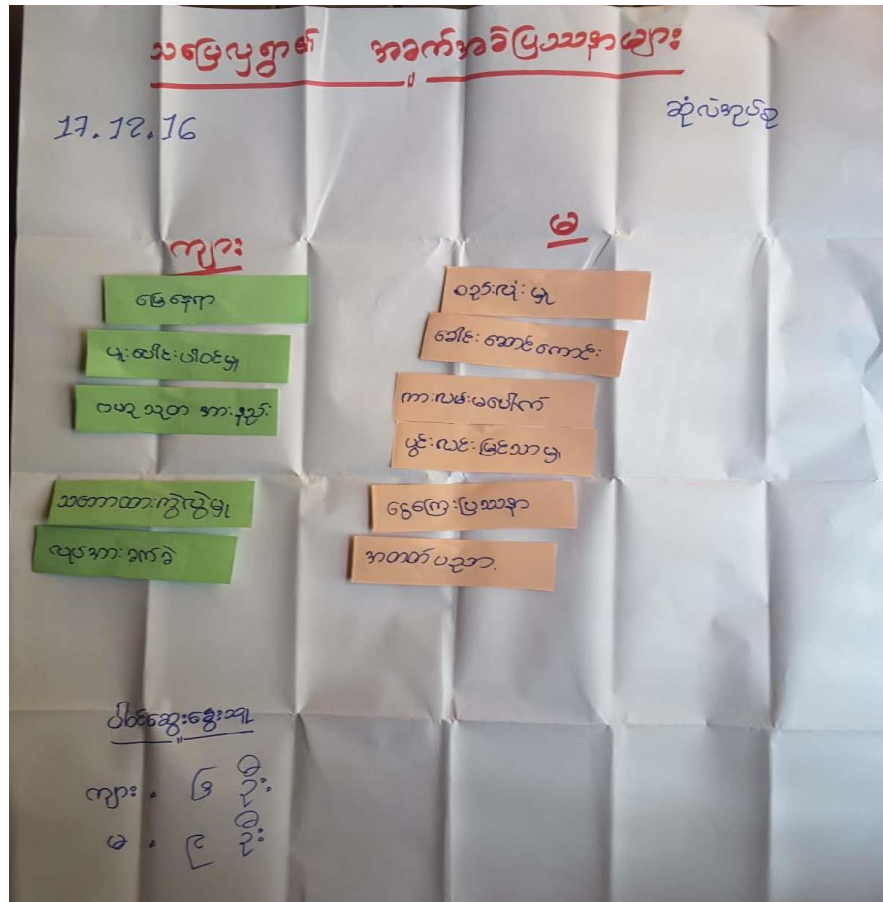 သပြေလှရွာ၏ အခက်အခဲပြဿနာများ
17.12.16
ဆုံလဲအုပ်စု
ကျား
မ
မြေနေရာ
ပူးပေါင်းပါဝင်မှု
ဗဟုသုတ အားနည်း
သဘောထားကွဲလွဲမှု
လုပ်အားခက်ခဲ
စည်းလုံးမှု
ခေါင်းဆောင်ကောင်း
ကားလမ်းမပေါက်
ပွင့်လင်းမြင်သာမှု
ငွေကြေးပြဿနာ
အတတ်ပညာ.
ပါဝင်ဆွေးနွေးသူ
ကျား . ဦး
မ . ၉ ဦး